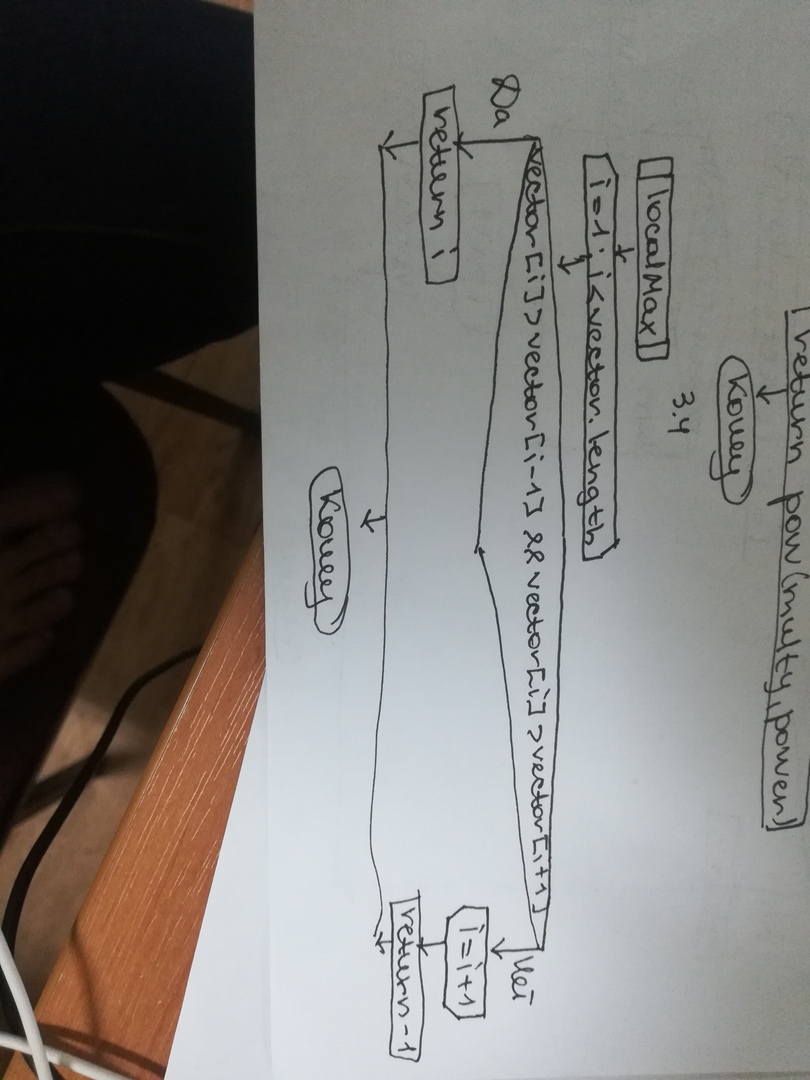 return pow(multy,power)
Конец
3.4
localMax
i=1; i<vector.length
vector[i]>vector[i-1] && vector[i]>vector[i+1]
Да
Нет
i=i+1
return i
return-1
Конец